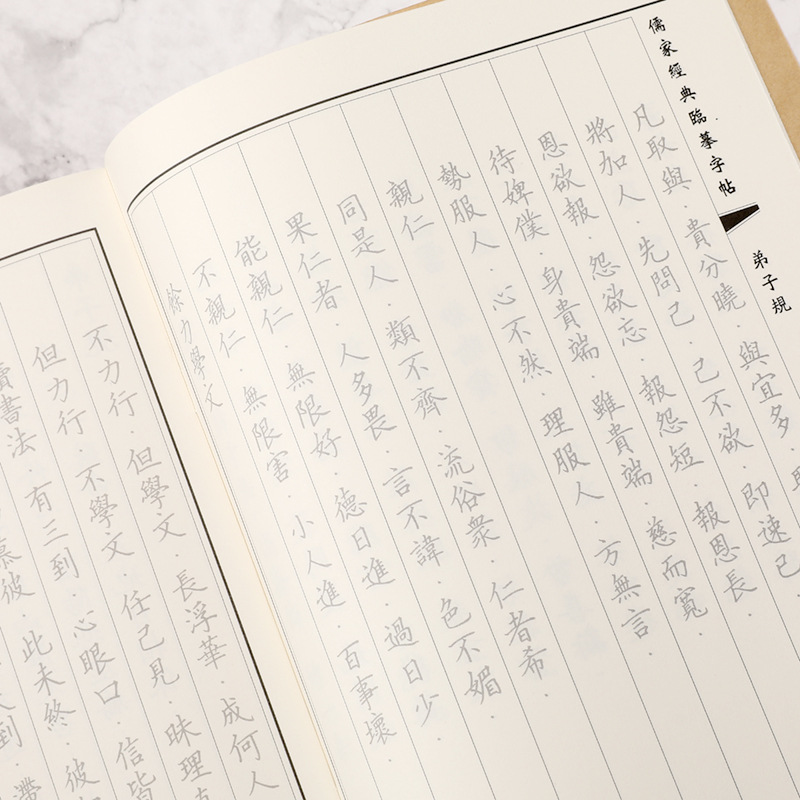 儒家經典臨摹字帖
弟子規
凡取與．貴分曉．與宜多．取
將加人．先問己．己不欲．即速已．
恩欲報．怨欲忘．報怨短．報恩長．
待婢僕．身貴端．雖貴端．慈而寬．
勢服人．心不然．理服人．方無言．
親仁
同是人．類不齊．流俗眾．仁者希．
果仁者．人多畏．言不諱．色不媚．
能親仁．無限好．德日進．過日少．
不親仁．無限害．小人進．百事壞．
餘力學文
不力行．但學文．長浮華．成何人
但力行．不學文．任己見．昧理
讀書法．有三到．心眼口．信皆
慕彼．此未終．彼
到．滯